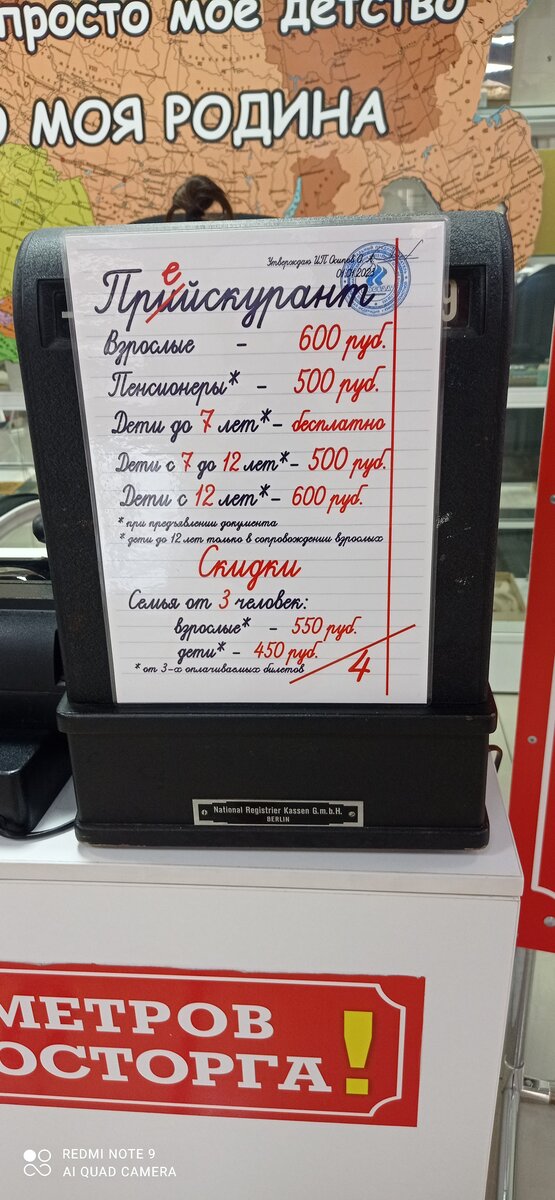 просто мое детство
МОЯ РОДИНА
Утверждаю ИП Осипов О. А.
01.01.2023
е
Прийскурант
Взрослые - 600 руб.
Пенсионеры* - 500 руб.
Дети до 7 лет* - бесплатно
Дети с 7 до 12 лет* - 500 руб.
Дети с 12 лет* - 600 руб.
* при предъявлении документа
* дети до 12 лет только в сопровождении взрослых
Скидки
Семья от 3 человек:
взрослые* - 550 руб.
дети* - 450 руб.
* от 3-х оплачиваемых билетов
4
National Registrier Kassen G.m.b.H.
BERLIN
МЕТРОВ
ОСТОРГА!
REDMI NOTE 9
AI QUAD CAMERA